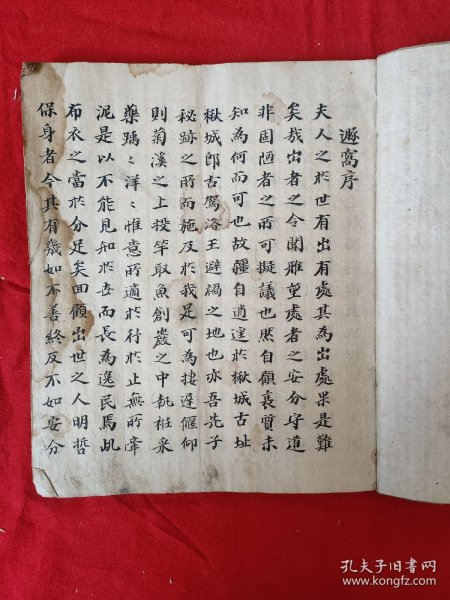 遯窩序
夫人之於世有出有處其為出處果是難
矣哉出者之令聞雅望處者之安分守道
非固陋者之所可擬議也然自顧衰質未
知為何而可也故疆自逍遑於楸城古址
楸城郎古駕洛王避禍之地也亦吾先子
秘跡之所而施及於我足可為捿遲偃仰
則菊溪之上投竿取魚創巖之中執梃采
藥踽〻洋〻惟意所適於行於止無所牽
泥是以不能見知於世而長為逸民焉此
布衣之當於分足矣回顧出世之人明哲
保身者今其有幾如不善終反不如安分
孔夫子旧书网
www.kongfz.com